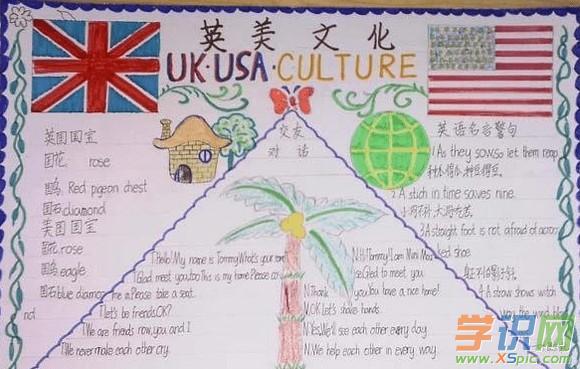 英美文化
UK·USA·CULTURE
英国国宝
国花 rose
国鸟 Red pigeon chest
国石diamond
美国国宝
国花.rose
国鸟eagle
国石blue diamond
交友
对话
Hello! My name is Tommy.What's your name
Glad meet you,too.This is my home.Please come
in a Please take a seat.
Let's be friends.OK?
We are friends now,you and I
We never make each other cry.
N:Hi!Tommy!I am Mini Mouse
Glad to meet you.
N:Thank you.You have a nice home!
N.OK.Let's shake hands.
N.Yes,We'll see each other every day.
N.We help each other in every way.
英语名言警句
1 As they sow,so let them reap
种瓜得瓜,种豆得豆.
2 A stitch in time saves nine.
小洞不补,大洞吃苦.
3 A straight foot is not afraid of a crooked shoe.
4 A straw shows which way the wind blows
学识网
www.XSpic.com